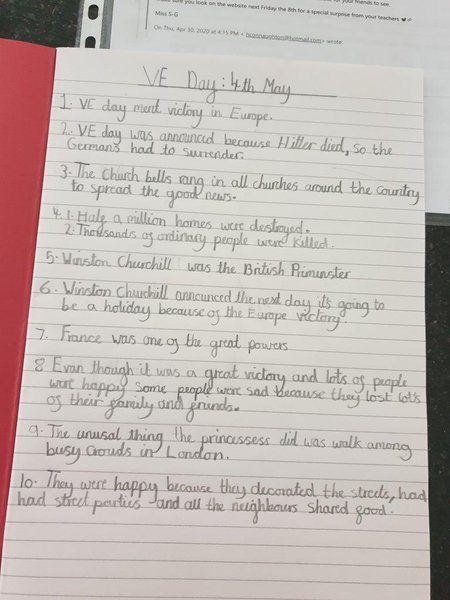 make sure you look on the website next Friday the 8th for a special surprise from your teachers
Miss S-G
On Thu, Apr 30, 2020 at 4:15 PM < hconnaughton@hotmail.com> wrote:
VE Day: 4th May
1. VE day ment victory in Europe.
2. VE day was announced because Hitler died, so the
Germans had to surrender.
3. The Church bells rang in all churches around the country
to spread the good news.
4. 1. Half a million homes were destroyed.
2. Thousands of ordinary people were killed.
5. Winston Churchill was the British Priminster
6. Winston Churchill announced the next day it's going to
be a holiday because of the Europe victory.
7. France was one of the great powers
8 Evan though it was a great victory and lots of people
were happy some people were sad because they lost lots
of their family and frunds.
9. The unusal thing the princessess did was walk among
busy crouds in London.
10. They were happy because they decorated the streets, had
had street parties and all the neighbours shared food.